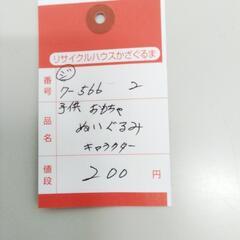 リサイクルハウスかざぐるま
番号 ジ 7-566 2
品名 子供 おもちゃ
ぬいぐるみ
キャラクター
値段 200円